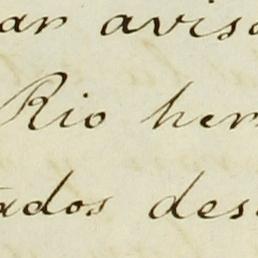 ar avis
Rio her
ados des